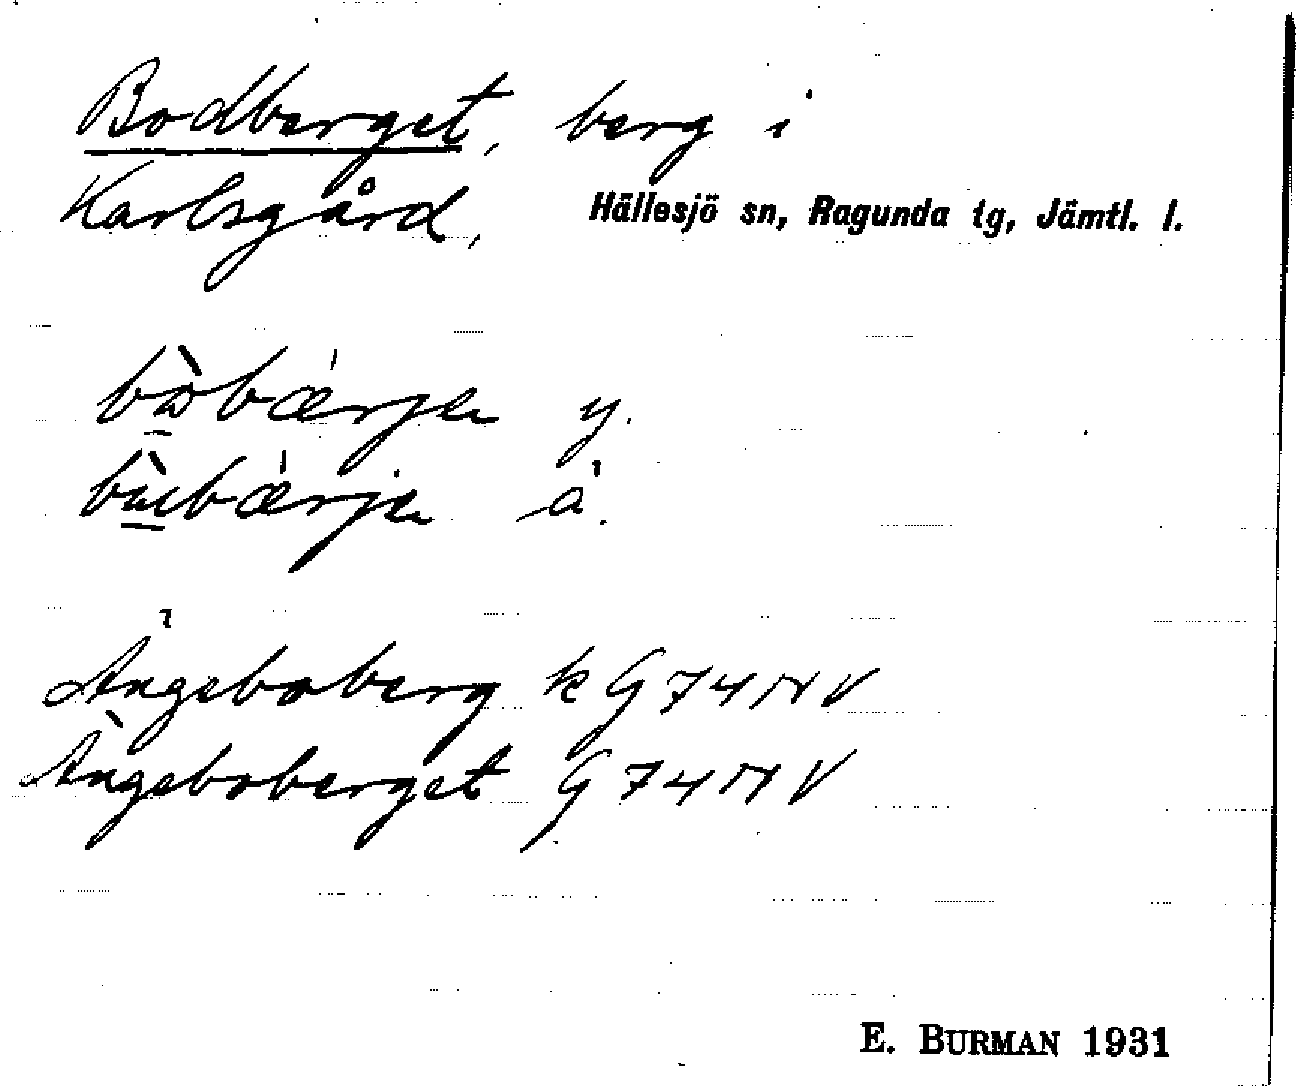 Bodberget, berg i
Karlsgård, Hällesjö sn, Ragunda tg, Jämtl. l.
y.
ä.
Ängeboberg k G 74 NV
Ängeboberget G 74 NV
E. BURMAN 1931